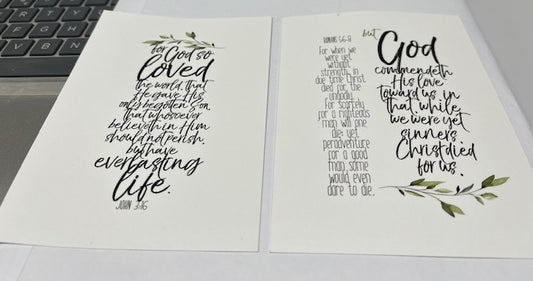 for God so
loved
the world, that
He gave His
only begotten son,
that whosoever
believeth in Him
should not perish,
but have
everlasting
life.
JOHN 3:16
ROMANS 5:6-8
for when we
were yet
without
strength, in
due time Christ
died for the
ungodly.
for scarcely
for a righteous
man will one
die: yet
peradventure
for a good
man some
would even
dare to die.
but
God
commendeth
His love
toward us in
that, while
we were yet
sinners,
Christ died
for us.